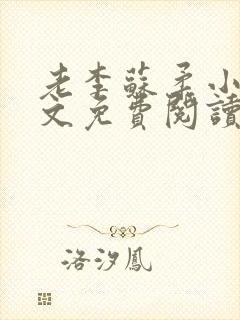 老李蘇柔小
文免費閱讀
洛汐鳳